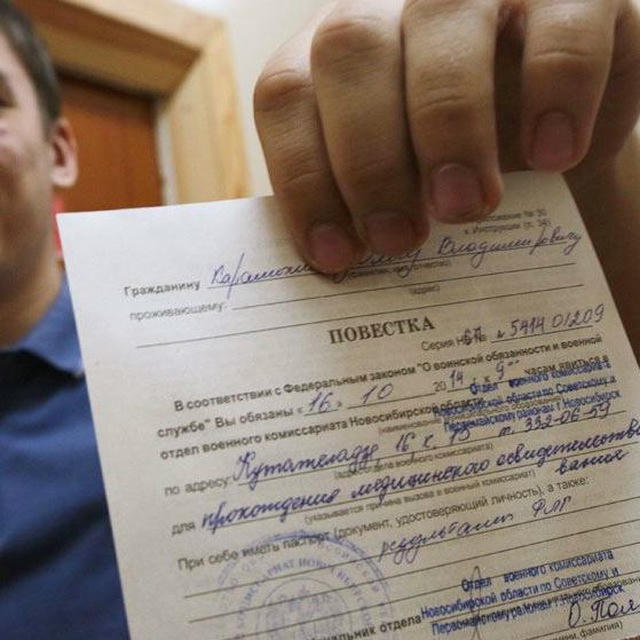 к Инструкции (п. 34)
Гражданину Владимировичу
проживающему:
(адрес)
ПОВЕСТКА
Серия № 5414 01209
В соответствии с Федеральным законом "О воинской обязанности и военной
службе" Вы обязаны « 16 » 10 20 14 к 9 часам явиться в
отдел военного комиссариата Новосибирской области
Отдел военного комиссариата
Новосибирской области по Советскому и
Первомайскому районам г Новосибирск
по адресу: Кутателадзе 16 к 13 т. 332-06-59
(адрес отдела военного комиссариата)
для прохождения медицинского освидетельствования
(указывается причина вызова в военный комиссариат)
При себе иметь паспорт (документ, удостоверяющий личность), а также:
результаты ФЛГ
Начальник отдела
Отдел военного комиссариата
Новосибирской области по Советскому и
Первомайскому районам г Новосибирск
О. Пол